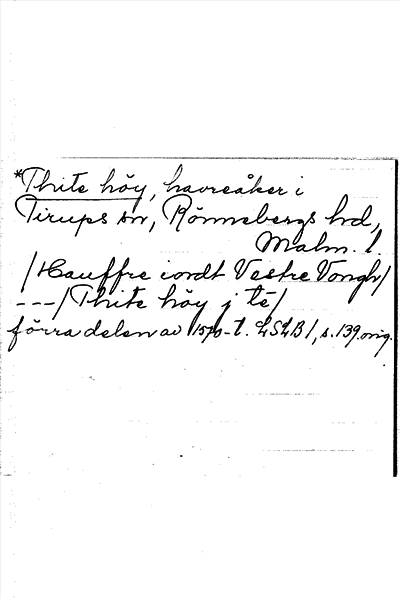 *Thite höy, havreåker i
Tirups sn, Rönnebergs hd,
Malm. l.
/Hauffre iordt Vestre Vongh/
---/Thite höy j té/
förra delen av 1570-t. LSLB1, s. 139 orig.